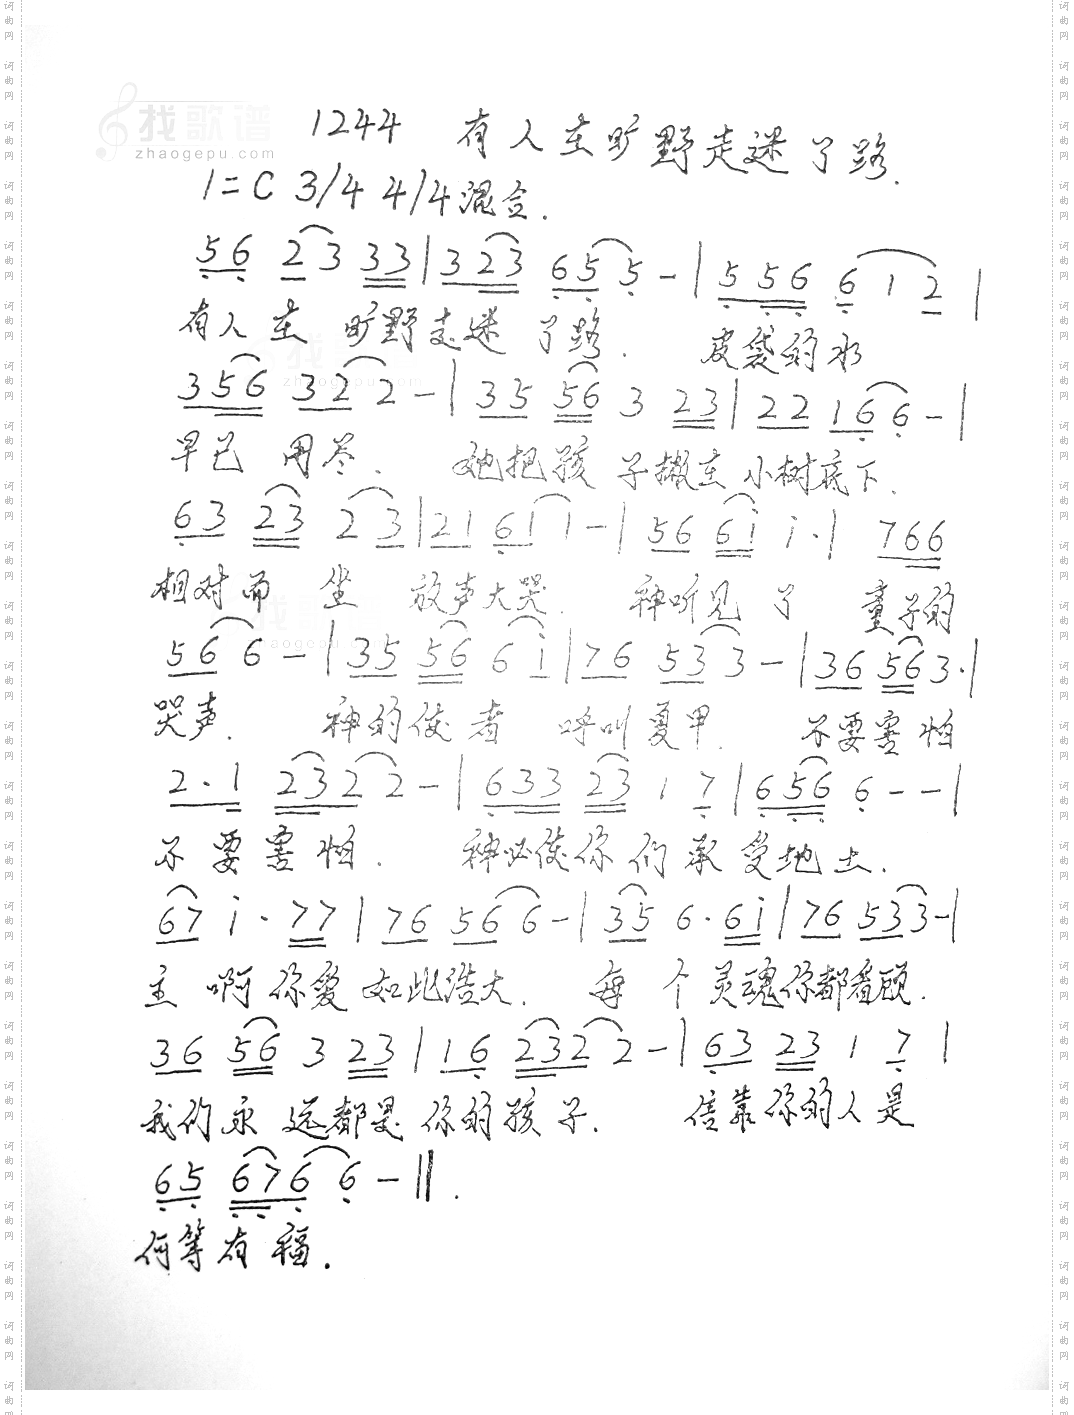 找歌谱
zhaogepu.com
1244 有人在旷野走迷了路.
1=C 3/4 4/4混合.
56 23 33|323 655-|556 612|
有人在 旷野走迷 了路. 皮袋的水
356 322-|35 56 3 23|22 166-|
早已 用尽. 她把孩 子撇在 小树底下.
63 23 23|21 611-|56 6i i·| 766
相对而 坐 放声大哭. 神听见 了 童子的
566-|35 56 6i|76 533-|36 563·|
哭声. 神的使者 呼叫夏甲. 不要害怕
2·1 2322-|633 23 1 7|656 6--|
不要害怕. 神必使你 们承受地土.
67 i·77|76 566-|35 6·6i|76 533-|
主 啊你爱 如此浩大. 每 个灵魂你都看顾.
36 56 3 23|16 2322-|63 23 1 7|
我们永 远都是 你的孩子. 信靠你的人是
65 6766-‖.
何等有福.